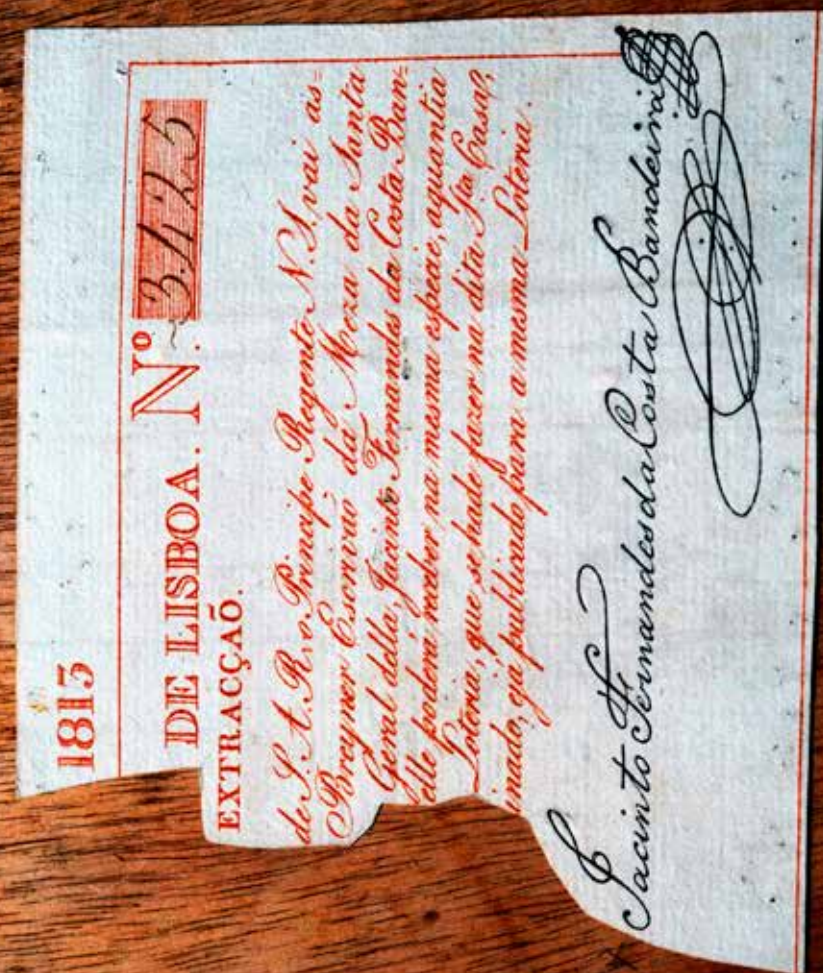 1813
DE LISBOA. Nº. 3.425
EXTRACÇAÕ.
de S. A. R. o Principe Regente N. S. vai as=
Breyner Escrivaõ da Meza da Santa
Geral della, Jacinto Fernandes da Costa Ban=
elle poderá receber na mesma especie, aquantia
Loteria, que se hade fazer na dita Sta Casa,
inado, eja publicado para a mesma Loteria.
Jacinto Fernandes da Costa Bandeira